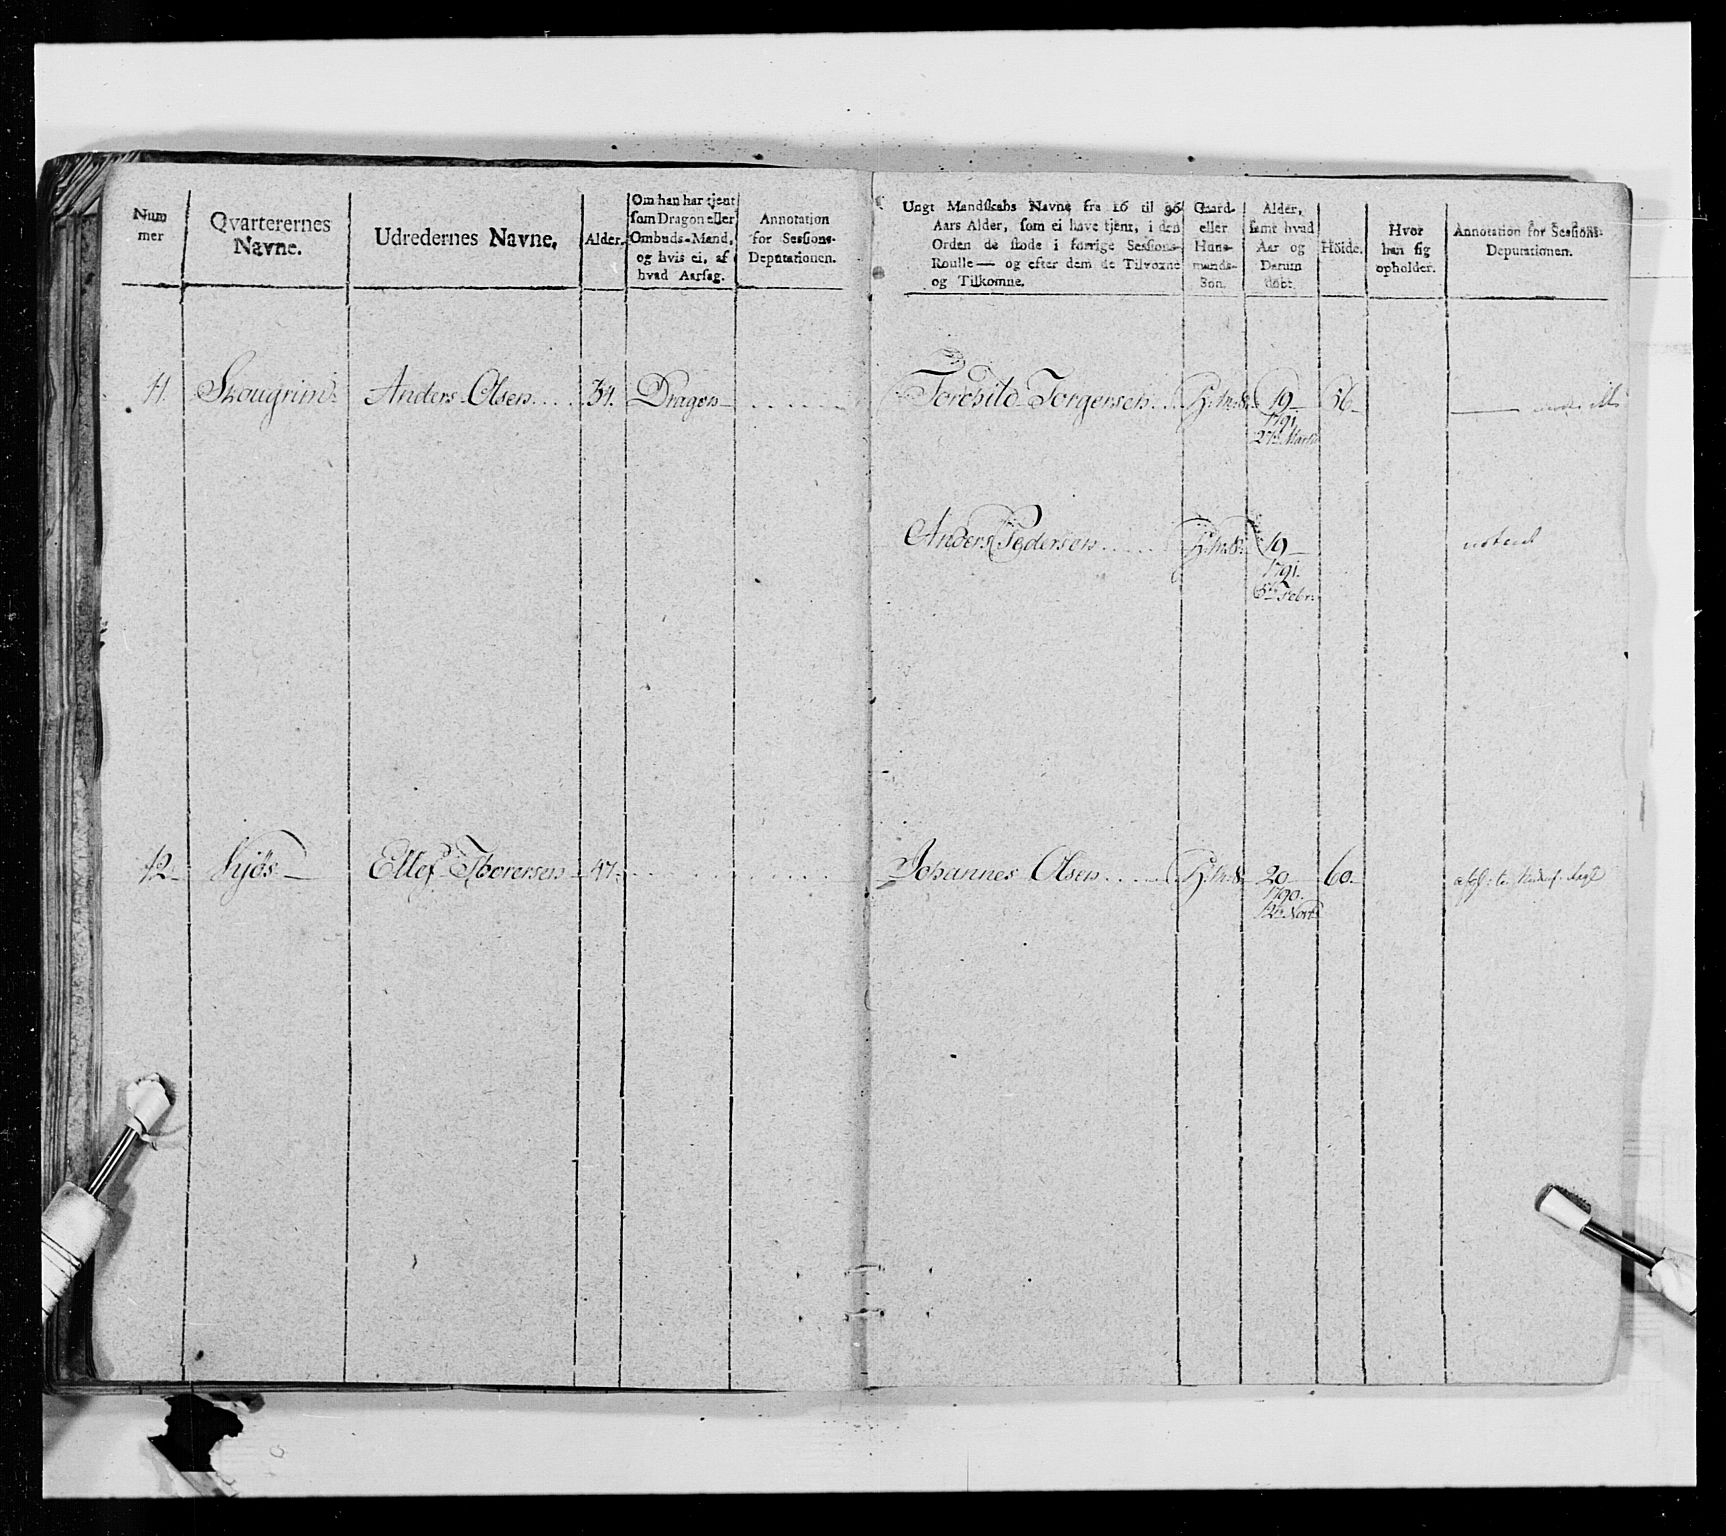 Num
mer
Qvarterernes
Navne.
Udredernes Navne.
Alder.
Om han har tjent
som Dragon eller
Ombuds-Mand,
og hvis ei, af
hvad Aarsag.
Annotation
for Sessions-
Deputationen.
Ungt Mandskabs Navne fra 16 til 36
Aars Alder, som ei have tjent, i den
Orden de stode i forrige Sessions-
Roulle — og efter dem de Tilvoxne
og Tilkomne.
Gaard-
eller
Huus-
mands-
Søn.
Alder,
samt hvad
Aar og
Datum
født.
Höide.
Hvor
han sig
opholder.
Annotation for Sessions-
Deputationen.
41. Skougrim Anders Olsen 34. Dragon Torchild Torgersen H.m.S. 19 56
1791
27de Marti
Anders Pedersen H.m.S. 19
1791.
6te Febr.
42. Kjös Ellef Thorersen 47. Johannes Olsen H.m.S. 20 60
1790.
12te Novb